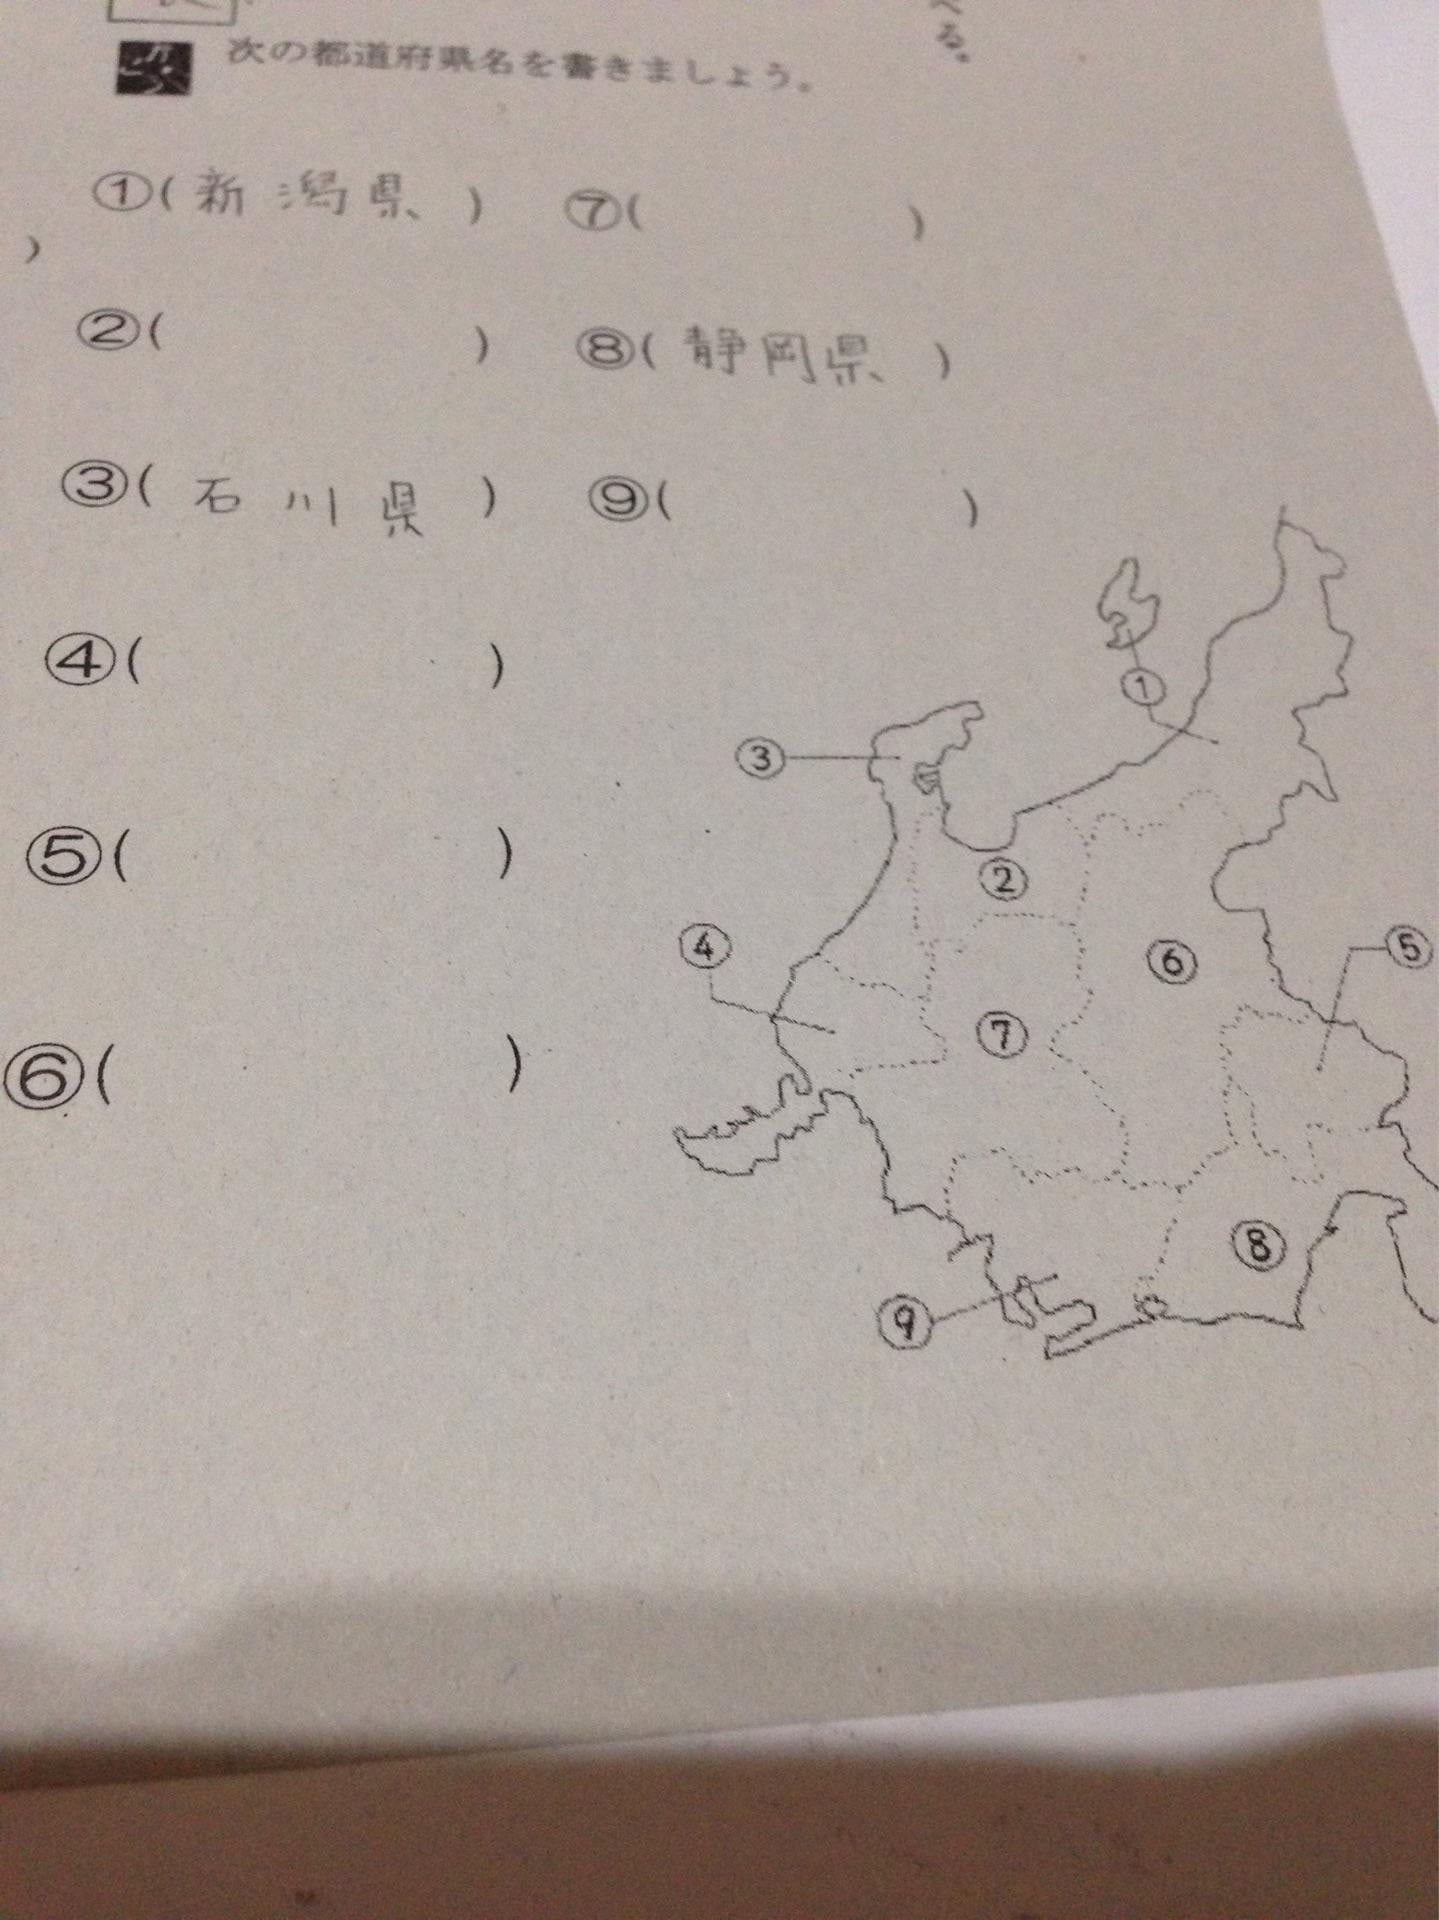 べる。
次の都道府県名を書きましょう。
①(新潟県)
②( )
③(石川県)
④( )
⑤( )
⑥( )
⑦( )
⑧(静岡県)
⑨( )
)
①
③
②
④
⑥
⑤
⑦
⑧
⑨